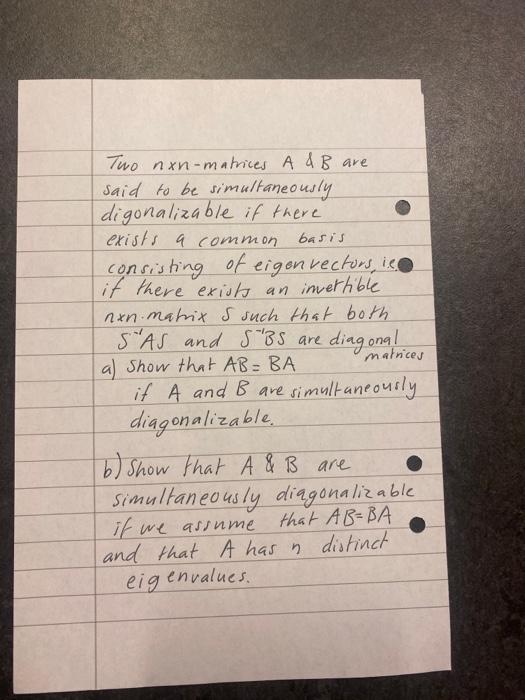 Two nxn-matrices A & B are
said to be simultaneously
digonalizable if there
exists a common basis
consisting of eigenvectors, i.e
if there exists an invertible
nxn-matrix S such that both
S⁻¹AS and S⁻¹BS are diagonal
matrices
a) Show that AB = BA
if A and B are simultaneously
diagonalizable.
b) Show that A & B are
simultaneously diagonalizable
if we assume that AB=BA
and that A has n distinct
eigenvalues.